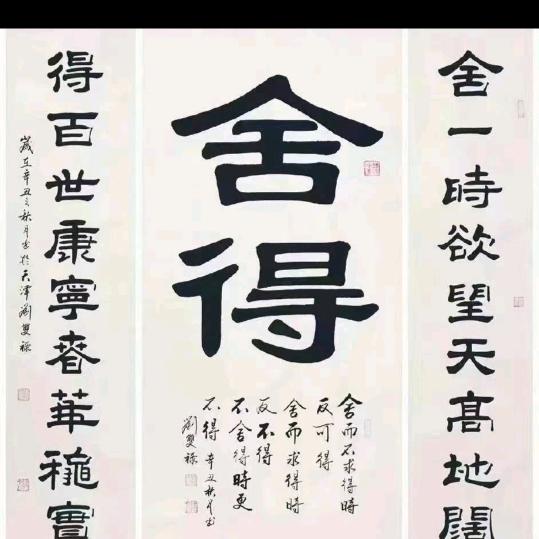 舍一時欲望天高地闊
舍得
舍而不求得時
反可得
舍而求得時
反不得
不舍得時更
不得
辛丑秋月書
劉雙祿
得百世康寧春華穐實
歲在辛丑之秋月書於天澤劉雙祿